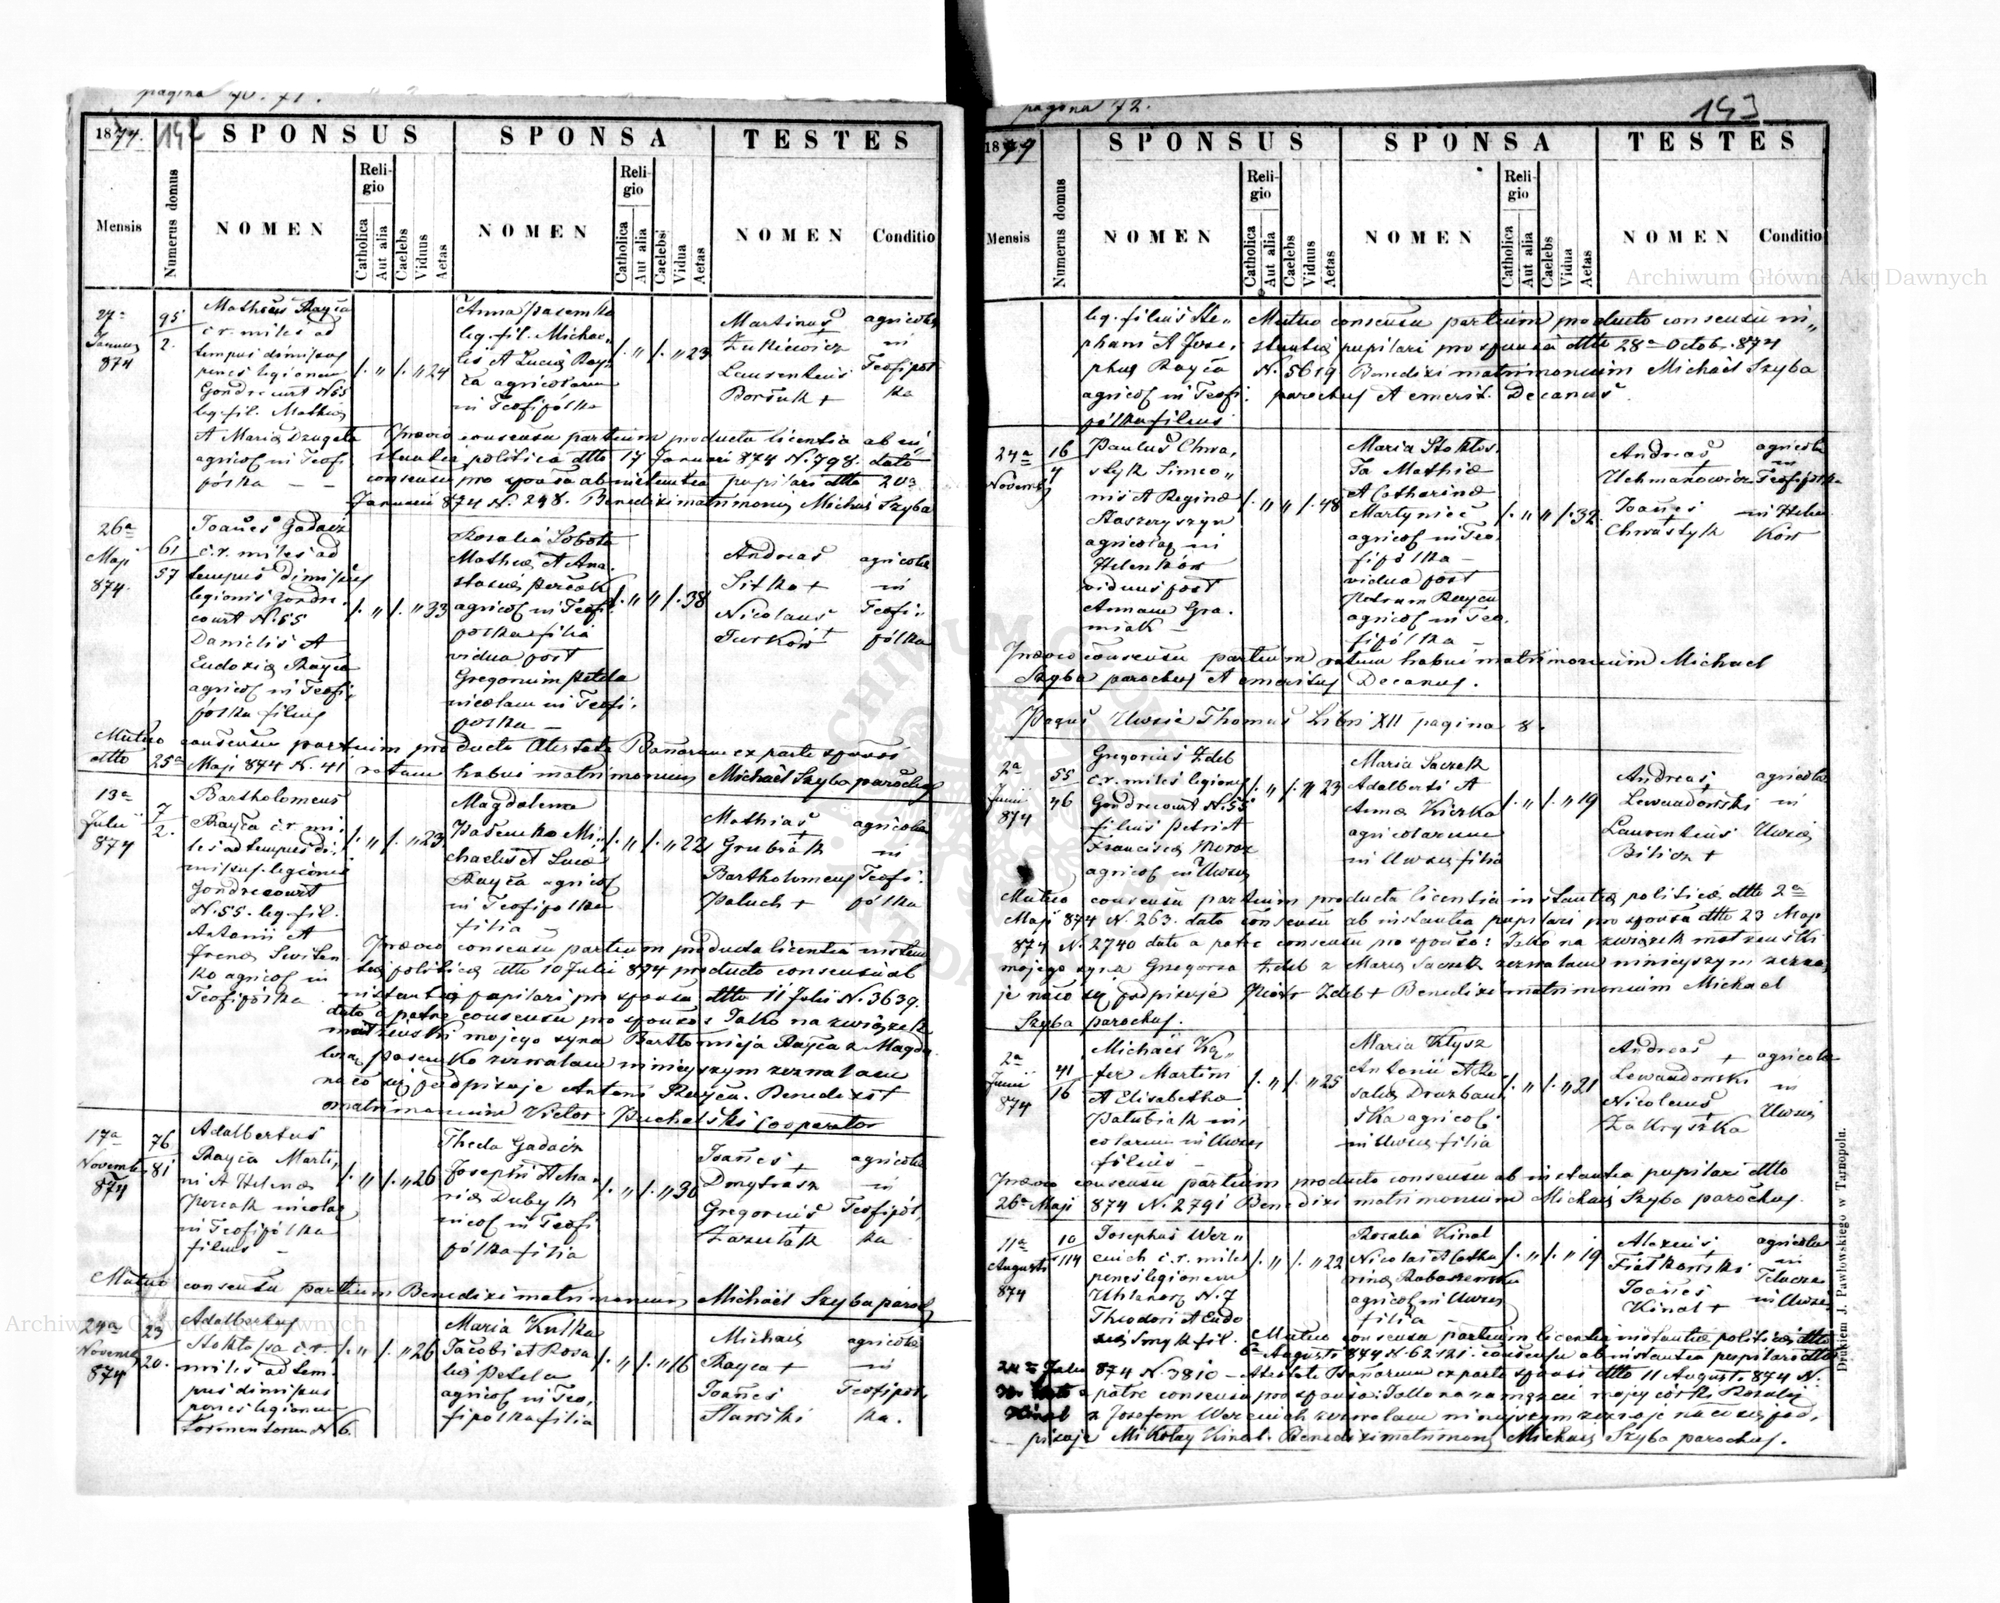 pagina 70. 71.
1874.
142
SPONSUS
SPONSA
TESTES
Mensis
Numerus domus
NOMEN
Religio
Catholica
Aut alia
Caelebs
Viduus
Aetas
NOMEN
Religio
Catholica
Aut alia
Caelebs
Vidua
Aetas
NOMEN
Conditio
27a
874
95
2.
Matheus Rayca
c.r. miles ad
tempus dimissus
penes legionem
Gondrecourt N 55
leg. fil. Mathiae
A Maria Dzugala
agricol in Teofi
pólka
24
Anna Pasemko
leg. fil. Michae
lis A Lucia Ray
ca agricolarum
in Teofipólka
23
Martinus
Zukiewicz
Laurentius
Borsuk +
agricola
in
Teofipol
ka
Praevio consensu partium producta licentia ab in
stantia politica dtto 17 Januari 874 N. 798. dato
consensu pro sponsa ab instantia pupilari dtto 20a
Januari 874 N. 298. Benedixi matrimonium Michael Szyba
26a
Maji
874.
61
57
Joanes Gadacz
c.r. miles ad
tempus dimissus
legionis Gondre
court N. 55
Danielis A
Eudoxia Rayca
agricol in Teofi
pólka filius
33
Rosalia Sobota
Mathiae A Ana
stasia
agricol in Teofi
polka filia
vidua post
Gregorium Petela
nicolam in Teofi
polka
38
Andreas
Sitka +
Nicolaus
Turkow
agricola
in
Teofi
pólka
Mutuo consensu partium producta Atestata Banorum ex parte sponsi
dtto 25a Maji 874 N. 41 ratum habui matrimonium Michael Szyba parochus
13a
Julii
874
7
2.
Bartholomeus
Rayca c.r. mi
les ad tempus di
missus legionis
Gondrecourt
N. 55. leg. fil.
Antonii A
Irena Switen
ko agricol in
Teofipólka
23
Magdalena
Pasemko Mi
chaelis A Luca
Rayca agricol
in Teofipolka
filia
22
Mathias
Grubiak
Bartholomeus
Paluch +
agricola
in
Teofi
pólka
Praevio consensu partium producta licentia instan
tiae politicae dtto 10 Julii 874 producto consensu ab
instantia pupilari pro sponsa dtto 11 Julii N. 3639.
dato a patre consensu pro sponso: Jako na związek
małżeński mojego syna Bartłomieja Rayca z Magda
leną Pasemko zezwalam niniejszym zeznałem
na co się podpisuje Antoni Rayca. Benedixit
matrimonium Victor Pucholski Cooperator
17a
Novembr
874
76
81
Adalbertus
Rayca Marti
ni A Helena
in Teofipólka
filius
26
Thecla Gadacz
Josephi A Ma
ria Dubyk
nicol in Teofi
pólka filia
30
Joanes
Dmytrasz
Gregorius
Zazulak
agricola
in
Teofipól
ka
Mutuo consensu partium Benedixi matrimonium Michael Szyba paroch
24a
Novemb
874
23
20.
Adalbertus
Stoklosa c.r.
miles ad tem
pus dimissus
penes legionem
Tormentorum N 6.
26
Maria Kulka
Jacobi et Rosa
lia Petela
agricol in Teo
fipolka filia
16
Michael
Rayca +
Joanes
Slawski
agricola
in
Teofipól
ka.
pagona 72.
143
1874
SPONSUS
SPONSA
TESTES
Mensis
Numerus domus
NOMEN
Religio
Catholica
Aut alia
Caelebs
Viduus
Aetas
NOMEN
Religio
Catholica
Aut alia
Caelebs
Vidua
Aetas
NOMEN
Conditio
leg. filius Ste
phani A Jose
pha Rayca
agricol in Teofi
pólka filius
Mutuo consensu partium producto consensu in
stantia pupilari pro sponsa dtto 28a Octob. 874
N. 5619 Benedixi matrimonium Michael Szyba
parochus A emerit. Decanus.
24a
Novemb
16
4
Paulus Chwa
styk Simeo
nis A Regina
Staszczyszyn
agricolae in
Helenków
viduus post
Annam Gra
niak
48
Maria Stoklos
sa Mathiae
A Catharina
Martyniec
agricol in Teo
fipólka
vidua post
Petrum Rayca
agricol in Teo
fipólka
32
Andreas
Uchmanowicz
Joanes
Chwastyk
agricola
in
Teofipolka
in Helen
ków
Praevio consensu partium ratum habui matrimonium Michael
Szyba parochus A emeritus Decanus.
Pagus Uwsie Thomus Libri XII pagina 8.
2a
Junii
874
55
46
Gregorius Zdeb
c.r. miles legionis
Gondrecourt N. 55
filius Petri A
Francisca Moroz
agricol in Uwsie
23
Maria Saczek
Adalberti A
Anna Kiczka
agricolarum
in Uwsie filia
19
Andreas
Lewandowski
Laurentius
Bilicz +
agricola
in
Uwsie
Mutuo consensu partium producta licentia instantiae politicae dtto 2a
Maji 874 N. 263. dato consensu ab instantia pupilari pro sponsa dtto 23 Maji
874 N. 2740 dato a patre consensu pro sponso: Jako na związek małżeński
mojego syna Gregorza Zdeb z Maria Saczek zezwalam niniejszym zezna
je na co się podpisuje Piotr Zdeb + Benedixi matrimonium Michael
Szyba parochus.
2a
Junii
874
41
16
Michael Kę
fer Martini
A Elisabetha
Patubiak in
colarum in Uwsie
filius
25
Maria Klysz
Antonii A Ro
salia Drazbau
ska agricol
in Uwsie filia
21
Andreas
Lewandowski
Nicolaus
Zakryszka
agricola
in
Uwsie
Praevio consensu partium producto consensu ab instantia pupilari dtto
26a Maji 874 N. 2791 Benedixi matrimonium Michael Szyba parochus.
11a
Augusti
874
10
114
Josephus Wer
enich c.r. miles
penes legionem
Uhlanor N. 7
Theodori A Eudo
xia Smyk fil.
22
Rosalia Kinal
Nicolai A Catha
rina
agricol in Uwsie
filia
19
Alexius
Fialkowski
Joanes
Kinal +
agricola
in
in Uwsie
Mutuo consensu partium licentia instantiae politicae dtto
6a Augusti 874 N. 62121. consensu ab instantia pupilari dtto
874 N. 3810 Atestata Banorum ex parte sponsi dtto 11 Augusti 874 N.
a patre consensu pro sponsa: Jako na zamęzcie mojey córki Rozalij
Kinal z Josefem Werenich zezwalam niniejszym zeznaje na co się pod
pisuje Mikołay Kinal. Benedixi matrimoni Michael Szyba parochus.
Drukiem J. Pawłowskiego w Tarnopolu.
Archiwum Główne Akt Dawnych
Archiwum Główne Akt Dawnych
ARCHIWUM GŁÓWNE AKT DAWNYCH